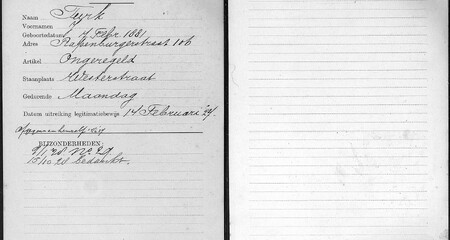 Naam Turk
Voornamen J
Geboortedatum 4 Febr 1881
Adres Rapenburgerstraat 106
Artikel Ongeregeld
Staanplaats Westerstraat
Gedurende Maandag
Datum uitreiking legitimatiebewijs 14 Februari '24.
BIJZONDERHEDEN:
15/10 28 bedankt.